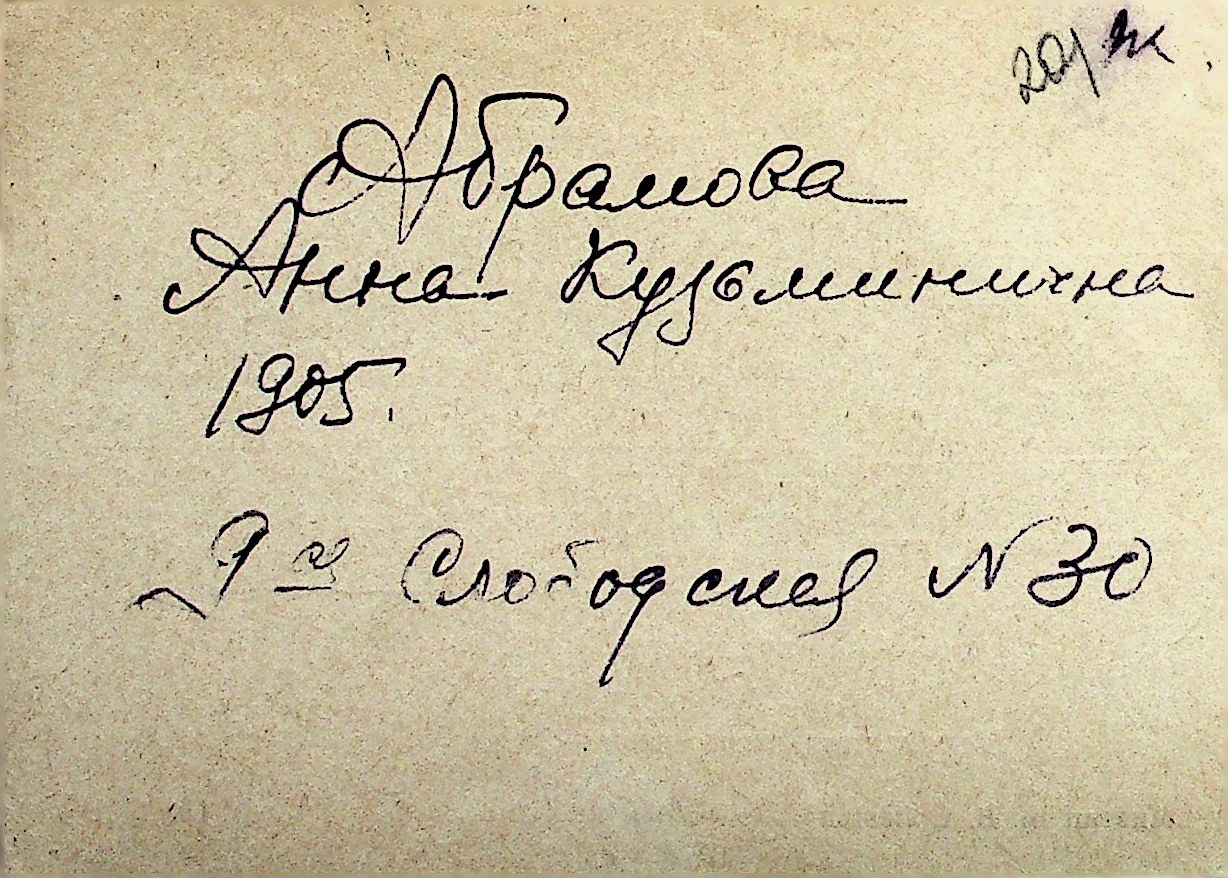 201
Абрамова
Анна Кузьминична
1905.
9 ая Слободская N 30